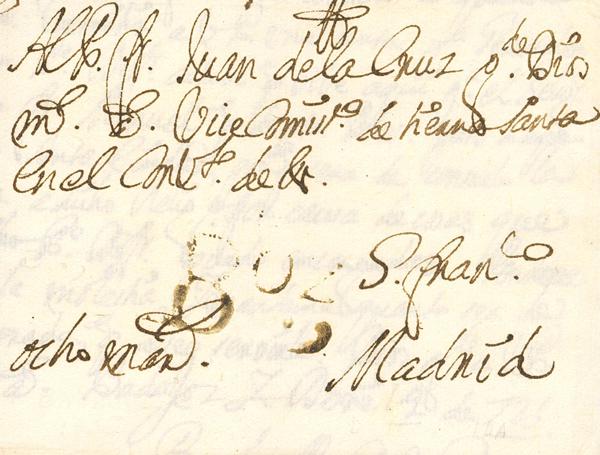 Al P. Fr. Juan de la Cruz g.de Dios
m.s a.s Vice Comiss.o de tierra Santa
en el Conv.to de Sr.
S. Fran.co
ocho mar.s
Madrid